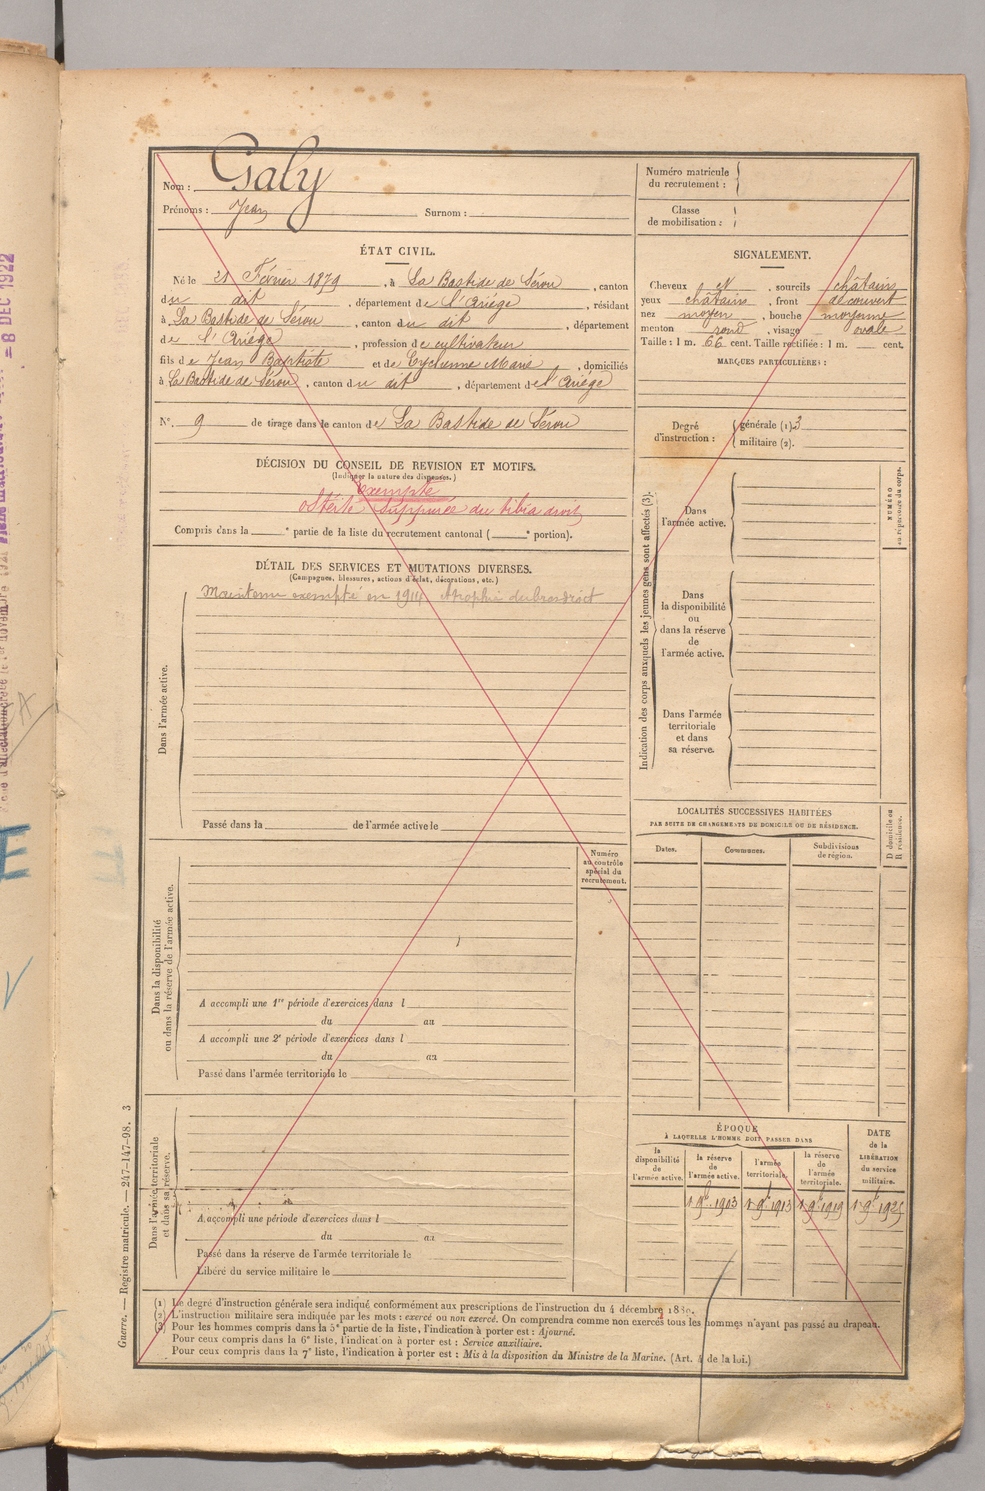 Nom : Galy
Prénoms : Jean Surnom :
Numéro matricule du recrutement :
Classe de mobilisation :
ÉTAT CIVIL.
Né le 21 Février 1879, à La Bastide de Sérou, canton
du dit, département de l'Ariège, résidant
à La Bastide de Sérou, canton du dit, département
de l'Ariège, profession de cultivateur
fils de Jean Baptiste et de Eychenne Marie, domiciliés
à La Bastide de Sérou, canton du dit, département de l'Ariège
N°. 9 de tirage dans le canton de La Bastide de Sérou
SIGNALEMENT.
Cheveux et, sourcils châtains
yeux châtains, front découvert
nez moyen, bouche moyenne
menton rond, visage ovale
Taille : 1 m. 66 cent. Taille rectifiée : 1 m. cent.
MARQUES PARTICULIÈRES :
Degré d'instruction : générale (1). 3
militaire (2).
DÉCISION DU CONSEIL DE REVISION ET MOTIFS.
(Indiquer la nature des dispenses.)
exempté
ostéite suppurée du tibia droit
Compris dans la e partie de la liste du recrutement cantonal ( e portion).
DÉTAIL DES SERVICES ET MUTATIONS DIVERSES.
(Campagnes, blessures, actions d'éclat, décorations, etc.)
Maintenu exempté en 1914 Atrophie du bras droit
Dans l'armée active.
Passé dans la de l'armée active le
Indication des corps auxquels les jeunes gens sont affectés (3).
Dans l'armée active.
Dans la disponibilité ou dans la réserve de l'armée active.
Dans l'armée territoriale et dans sa réserve.
NUMÉRO au répertoire du corps.
LOCALITÉS SUCCESSIVES HABITÉES
PAR SUITE DE CHANGEMENTS DE DOMICILE OU DE RÉSIDENCE.
Dates. Communes. Subdivisions de région.
D domicile ou R résidence.
Numéro au contrôle spécial du recrutement.
Dans la disponibilité ou dans la réserve de l'armée active.
A accompli une 1re période d'exercices dans l
du au
A accompli une 2e période d'exercices dans l
du au
Passé dans l'armée territoriale le
Dans l'armée territoriale et dans sa réserve.
A accompli une période d'exercices dans l
du au
Passé dans la réserve de l'armée territoriale le
Libéré du service militaire le
ÉPOQUE
À LAQUELLE L'HOMME DOIT PASSER DANS
la disponibilité de l'armée active.
la réserve de l'armée active.
l'armée territoriale.
la réserve de l'armée territoriale.
DATE de la LIBÉRATION du service militaire.
1 9b. 1903 1 9b 1913 1 9b 1919 1 9b 1925
(1) Le degré d'instruction générale sera indiqué conformément aux prescriptions de l'instruction du 4 décembre 1889.
(2) L'instruction militaire sera indiquée par les mots : exercé ou non exercé. On comprendra comme non exercés tous les hommes n'ayant pas passé au drapeau.
(3) Pour les hommes compris dans la 5e partie de la liste, l'indication à porter est : Ajourné.
Pour ceux compris dans la 6e liste, l'indication à porter est : Service auxiliaire.
Pour ceux compris dans la 7e liste, l'indication à porter est : Mis à la disposition du Ministre de la Marine. (Art. 4 de la loi.)
Guerre. — Registre matricule. — 247-147-98. 3
8 DEC 1922